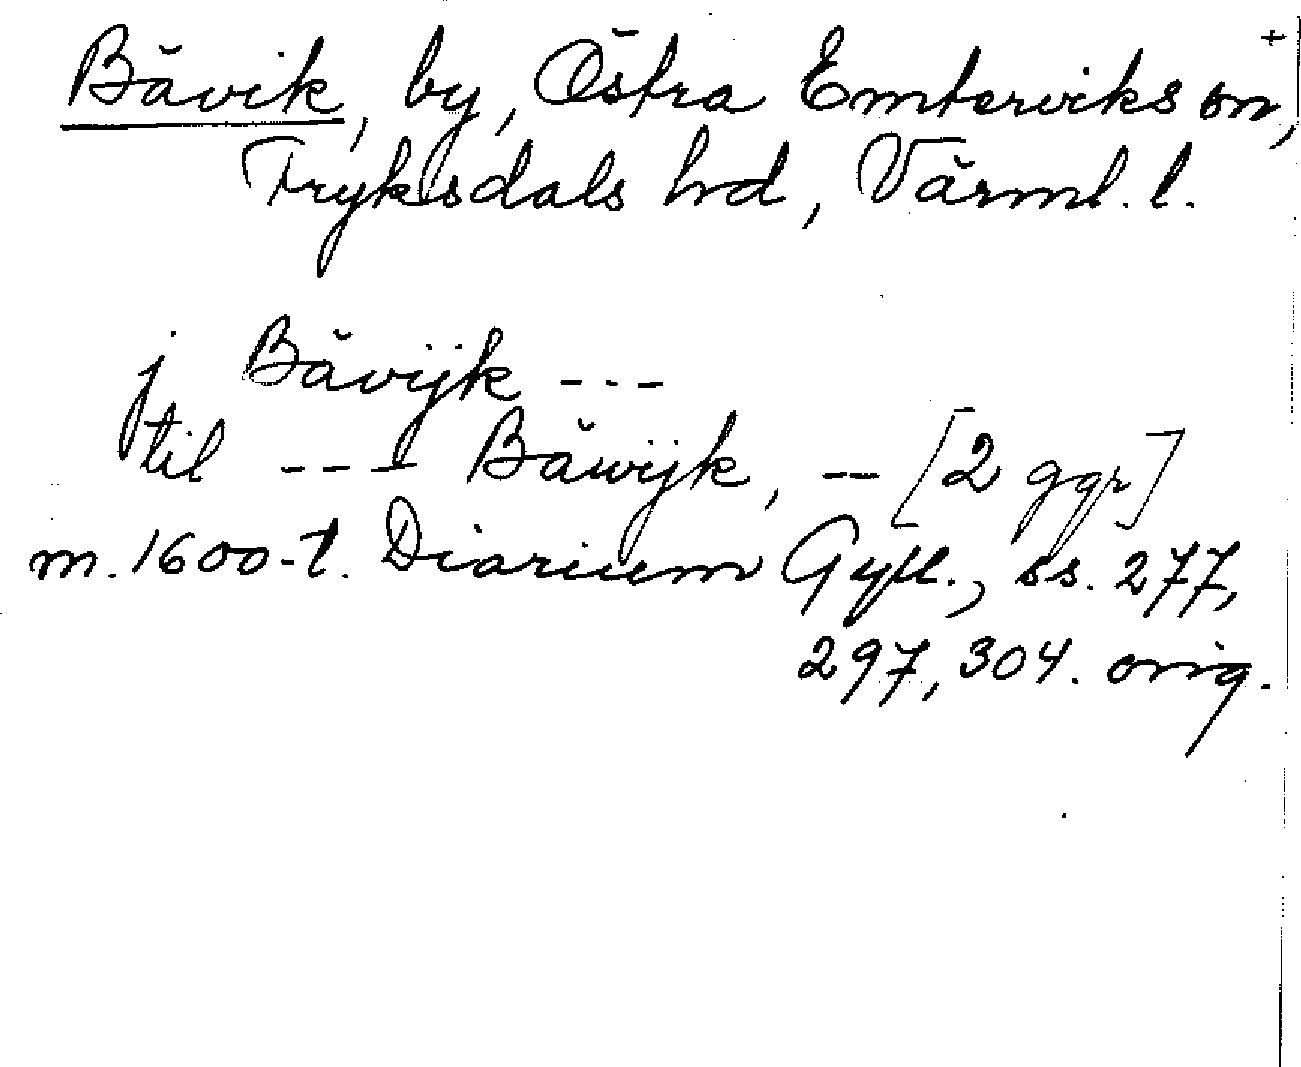 +
Bävik, by, Östra Emterviks sn,
Fryksdals hrd, Värml. l.
j Bävijk ---
til --- Bäwijk, -- [2 ggr]
m. 1600-t. Diarium Gyll., ss. 277,
297, 304. orig.